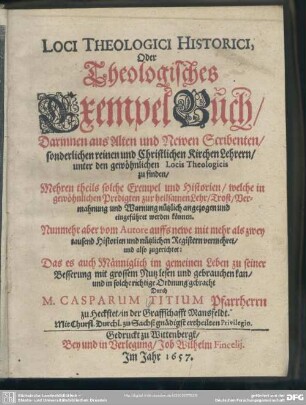 LOCI THEOLOGICI HISTORICI,
Oder
Theologisches
Exempel Buch/
Darinnen aus Alten und Newen Scribenten/
sonderlichen reinen und Christlichen Kirchen Lehrern/
unter den gewöhnlichen Locis Theologicis
zu finden/
Mehren theils solche Exempel und Historien/ welche in
gewöhnlichen Predigten zur heilsamen Lehr/ Trost/ Ver-
mahnung und Warnung nützlich angezogen und
eingeführet werden können.
Nunmehr aber vom Autore auffs newe mit mehr als zwey
tausend Historien und nützlichen Registern vermehret/
und also zugerichtet:
Das es auch Männiglich im gemeinen Leben zu seiner
Besserung mit grossem Nutz lesen und gebrauchen kan/
und in solche richtige Ordnung gebracht
Durch
M. CASPARUM TITIUM Pfarrherrn
zu Heckstet/in der Graffschafft Mansfeldt.
Mit Churfl. Durchl. zu Sachs. gnädigst ertheilten Privilegio.
Gedruckt zu Wittenbergk/
Bey und in Verlegung/ Job Wilhelm Fincelij.
Im Jahr 1657.